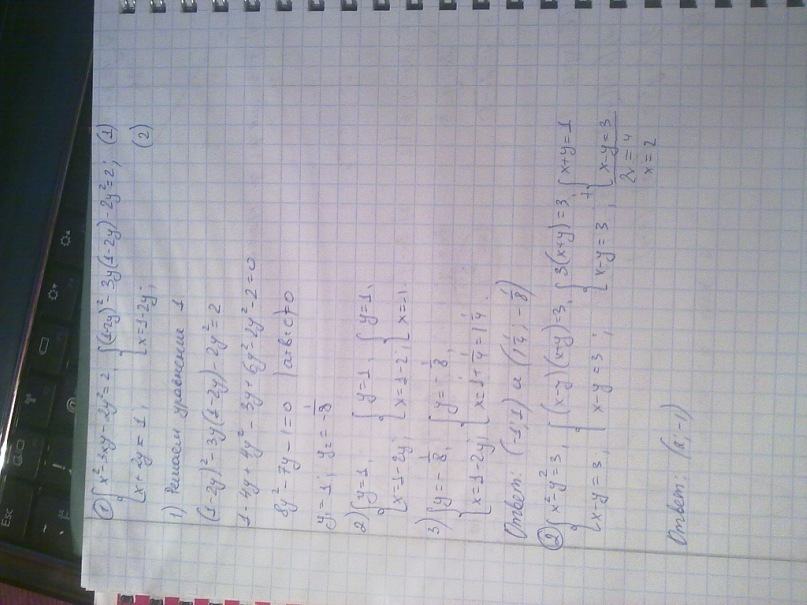 ① { x² - 3xy - 2y² = 2, { (1-2y)² - 3y(1-2y) - 2y² = 2; (1)
{ x + 2y = 1, { x = 1-2y; (2)
1) Решаем уравнение 1
(1-2y)² - 3y(1-2y) - 2y² = 2
1 - 4y + 4y² - 3y + 6y² - 2y² - 2 = 0
8y² - 7y - 1 = 0 | a+b+c=0
y₁ = 1; y₂ = -1/8
2) { y = 1, { y = 1, { y = 1,
{ x = 1-2y; { x = 1-2; { x = -1.
3) { y = -1/8, { y = -1/8,
{ x = 1-2y; { x = 1+1/4 = 1 1/4.
Ответ: (-1; 1) и (1 1/4; -1/8)
② { x² - y² = 3, { (x-y)(x+y) = 3, { 3(x+y) = 3, + { x+y = 1
{ x - y = 3, { x - y = 3; { x - y = 3, { x - y = 3
2x = 4
x = 2
Ответ: (2; -1)
Esc